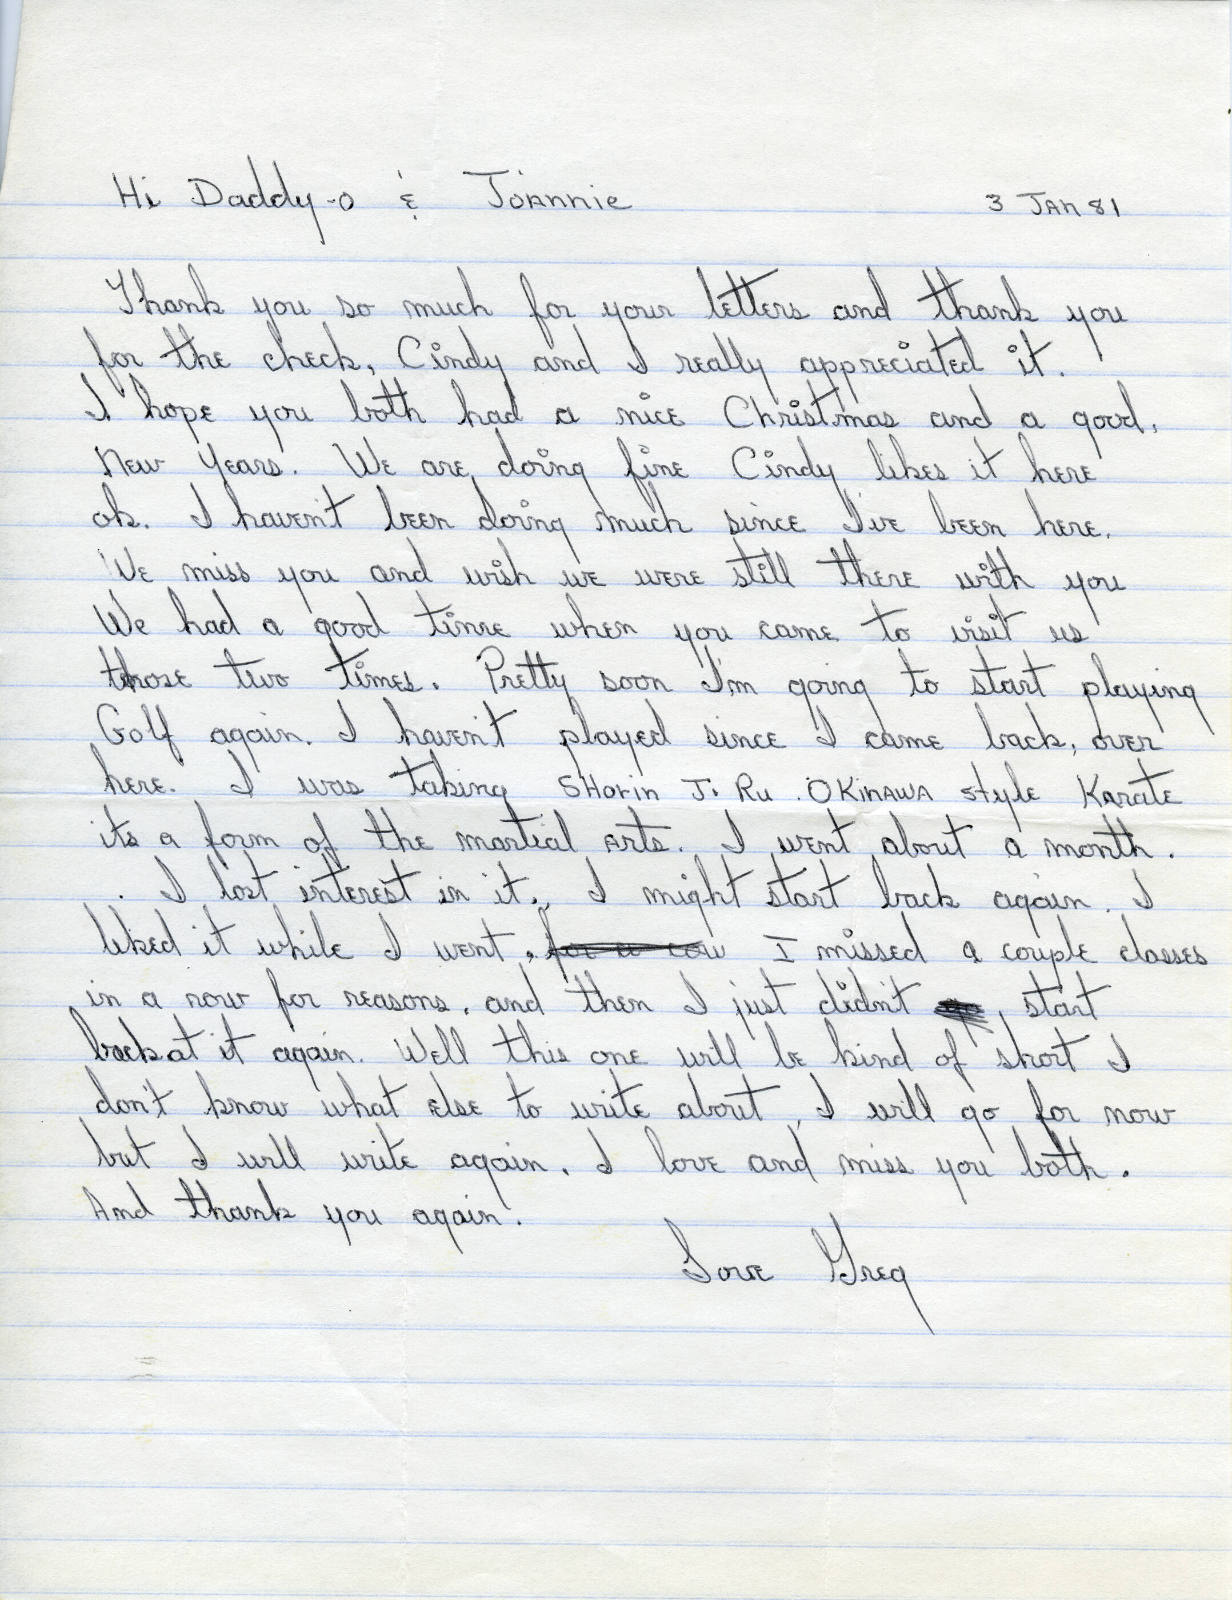 Hi Daddy-o & Joannie 3 JAN 81
Thank you so much for your letters and thank you
for the check, Cindy and I really appreciated it.
I hope you both had a nice Christmas and a good,
New Years. We are doing fine Cindy likes it here
ok. I haven't been doing much since I've been here.
We miss you and wish we were still there with you
We had a good time when you came to visit us
those two times. Pretty soon I'm going to start playing
Golf again. I haven't played since I came back, over
here. I was taking SHorin Ji Ru OKINAWA style Karate
its a form of the martial arts. I went about a month.
. I lost interest in it., I might start back again. I
liked it while I went, for a cow I missed a couple classes
in a row for reasons, and then I just didn't start
back at it again. Well this one will be kind of short I
don't know what else to write about, I will go for now
but I will write again. I love and miss you both.
And thank you again.
Love Greg